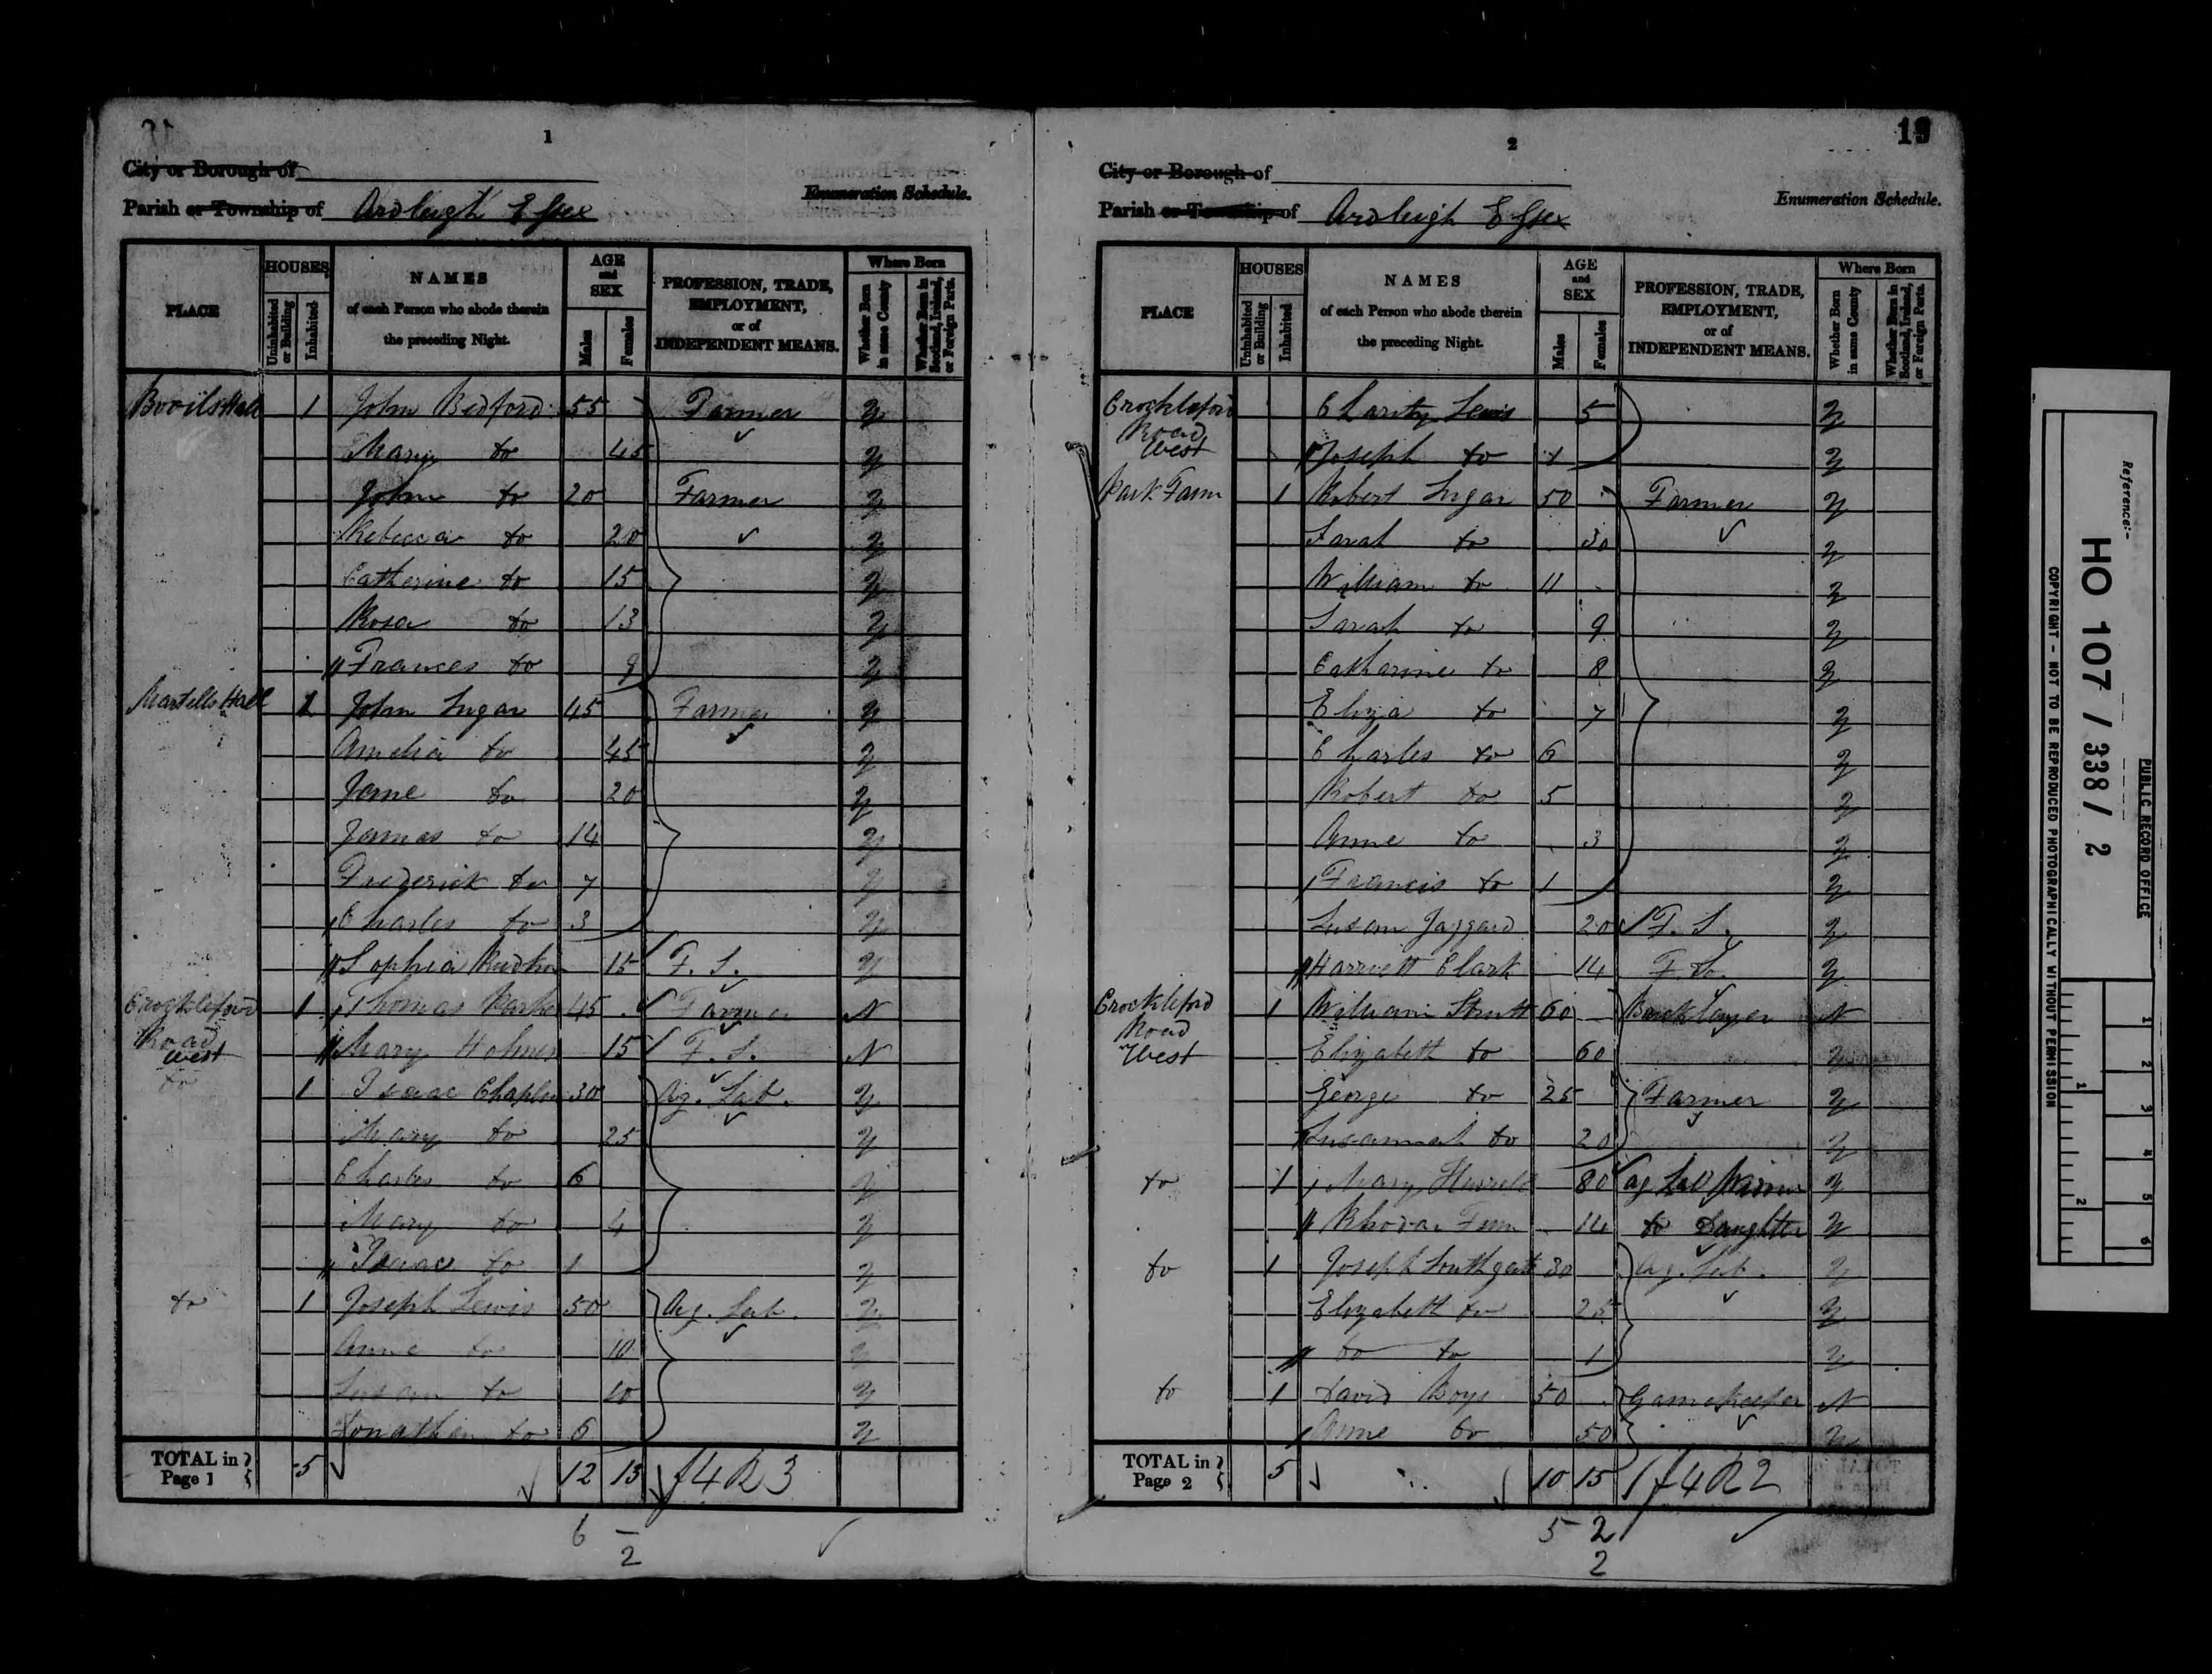 1
City or Borough of
Enumeration Schedule.
Parish or Township of Ardleigh Essex
PLACE
HOUSES
Uninhabited or Building
Inhabited
NAMES of each Person who abode therein the preceding Night.
AGE and SEX
Males
Females
PROFESSION, TRADE, EMPLOYMENT, or of INDEPENDENT MEANS.
Where Born
Whether Born in same County
Whether Born in Scotland, Ireland, or Foreign Parts.
1 John Bedford 55 Farmer y
Mary do 45 y
John do 20 Farmer y
Rebecca do 20 y
Catherine do 15 y
Rosa do 13 y
Frances do 9 y
Martells Hall 1 John Sugar 45 Farmer y
Amelia do 45 y
Jane do 20 y
James do 14 y
Frederick do 7 y
Charles do 3 y
Sophia 15 F. S. y
Crockleford Road West 1 Thomas 45 Farmer N
Mary Holmes 15 F. S. N
do 1 Isaac Chaplin 30 Ag. Lab. y
Mary do 25 y
Charles do 6 y
Mary do 4 y
Isaac do 1 y
do 1 Joseph Lewis 50 Ag. Lab. y
Anne do 10 y
Susan do 10 y
Jonathan do 6 y
TOTAL in Page 1 5 12 13
6
2
2
19
City or Borough of
Enumeration Schedule.
Parish or Township of Ardleigh Essex
PLACE
HOUSES
Uninhabited or Building
Inhabited
NAMES of each Person who abode therein the preceding Night.
AGE and SEX
Males
Females
PROFESSION, TRADE, EMPLOYMENT, or of INDEPENDENT MEANS.
Where Born
Whether Born in same County
Whether Born in Scotland, Ireland, or Foreign Parts.
Crockleford Road West Charity Lewis 5 y
Joseph do 1 y
Park Farm 1 Robert Sugar 50 Farmer y
Sarah do 30 y
William do 11 y
Sarah do 9 y
Catharine do 8 y
Eliza do 7 y
Charles do 6 y
Robert do 5 y
Anne do 3 y
Francis do 1 y
Susan Jaggard 20 F. S. y
Harriett Clark 14 F. S. y
Crockleford Road West 1 William Strutt 60 Bricklayer N
Elizabeth do 60 y
George do 25 Farmer y
Susannah do 20 y
do 1 Mary 80 Ag Lab Widow y
Rhoda Finn 14 do Daughter y
do 1 Joseph Southgate 30 Ag. Lab. y
Elizabeth do 25 y
do do 1 y
do 1 David Boys 50 Gamekeeper N
Anne do 50 y
TOTAL in Page 2 5 10 15
5 2
2
Reference:-
HO 107 / 338 / 2
PUBLIC RECORD OFFICE
COPYRIGHT - NOT TO BE REPRODUCED PHOTOGRAPHICALLY WITHOUT PERMISSION
1 2 3 4 5 6
1 2